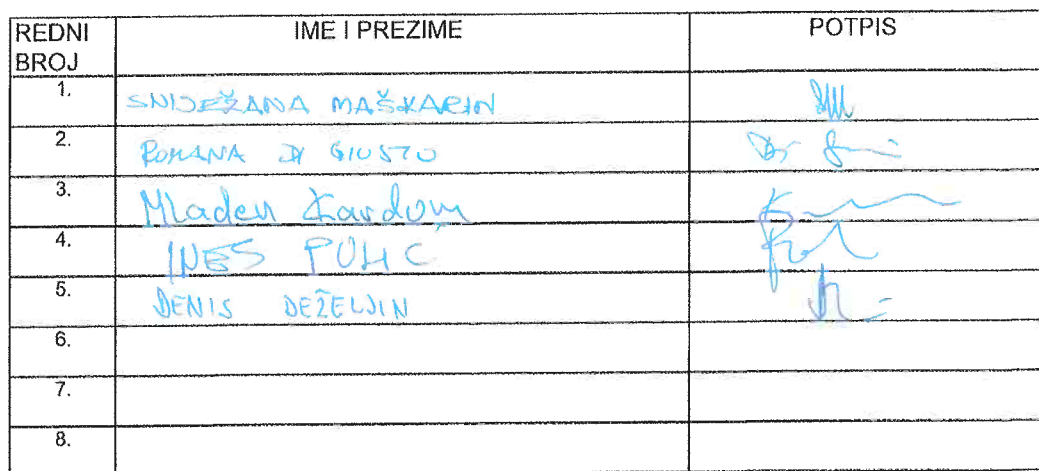 REDNI BROJ IME I PREZIME POTPIS
1. SNIJEŽANA MAŠKARIN
2. ROMANA DI GIUSTO
3. Mladen Kardum
4. INES PULIĆ
5. DENIS DEŽELJIN
6.
7.
8.